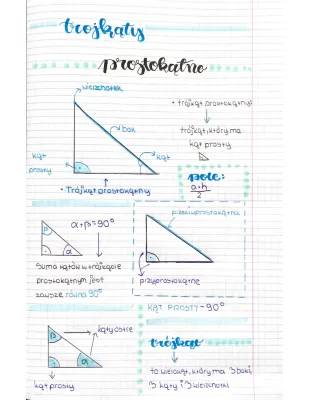 trójkąty
prostokątne
wierzchołek
bok
kąt
kąt
prosty
• Trójkąt prostokątny
• trójkąt prostokątny
trójkąt, który ma
kąt prosty
pole:
a•h
2
β
α
α+β=90°
Suma kątów w trójkącie
prostokątnym jest
zawsze równa 90°
przeciwprostokątna
przyprostokątne
KĄT PROSTY - 90°
β
α
kąty ostre
kąt prosty
trójkąt
to wielokąt, który ma 3 boki,
3 kąty i 3 wierzchołki